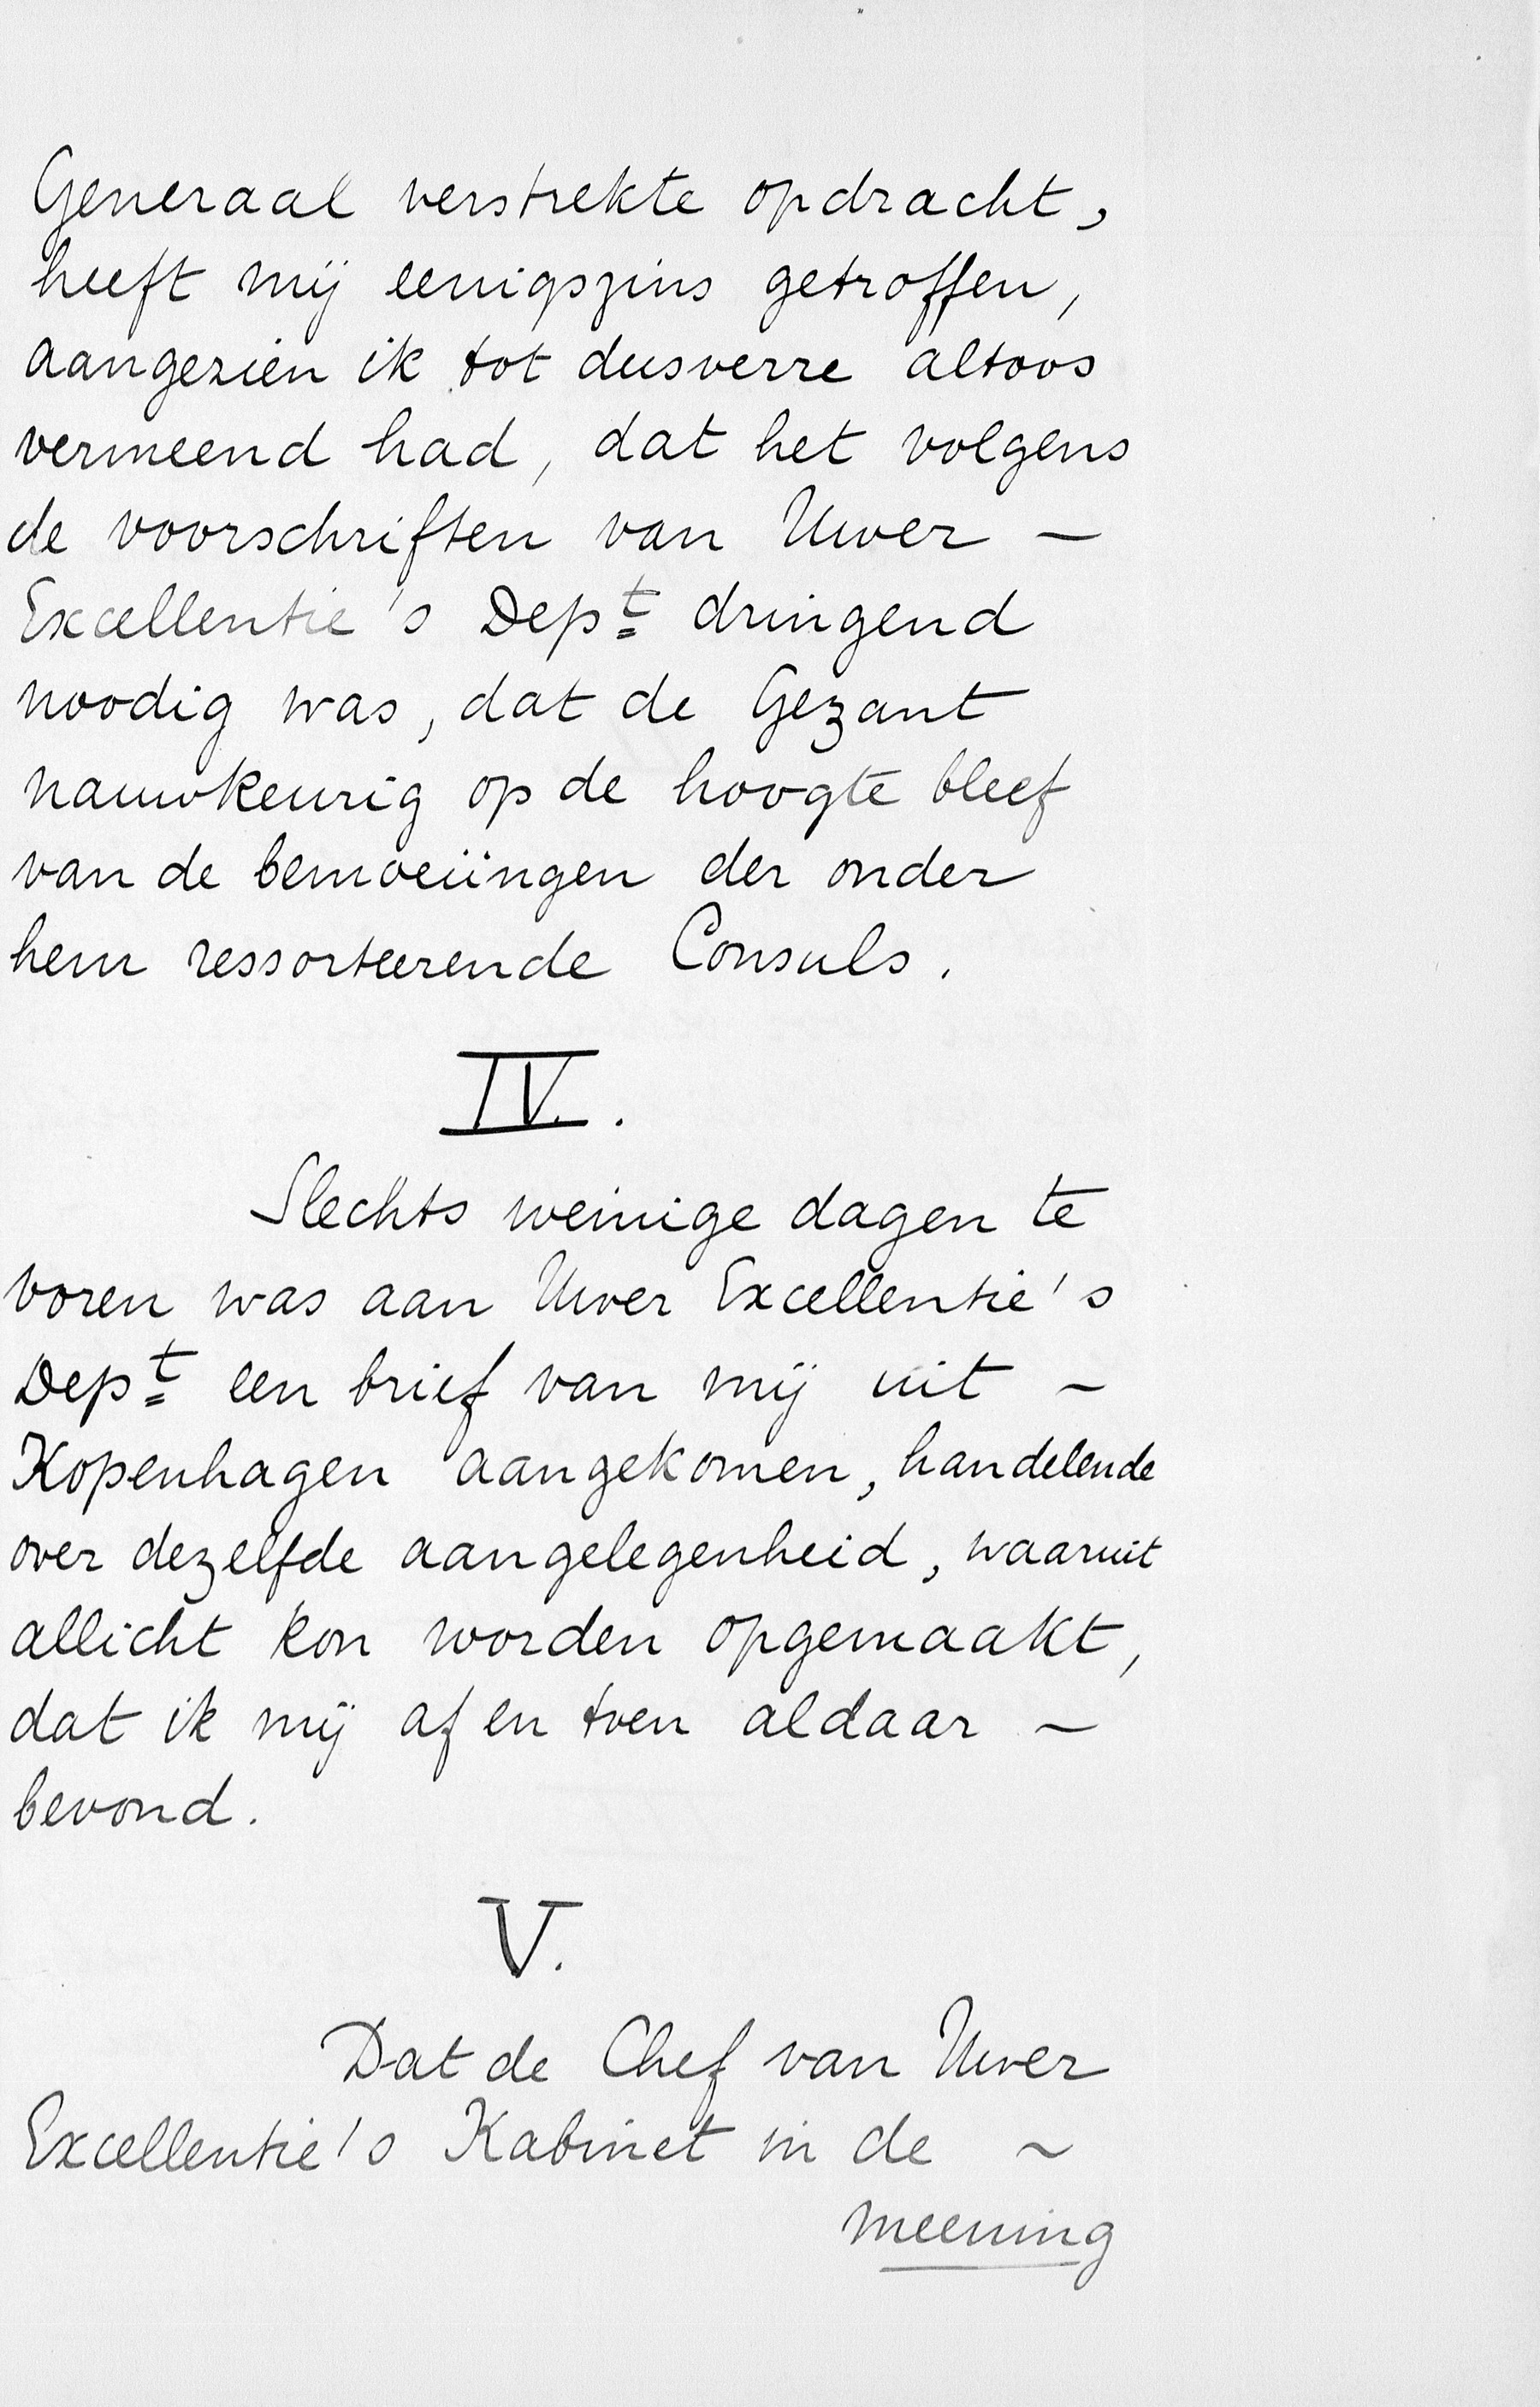 Generaal verstrekte opdracht,
heeft mij eenigszins getroffen,
aangezien ik tot dusverre altoos
vermeend had, dat het volgens
de voorschriften van Uwer –
Excellentie's Dept dringend
noodig was, dat de Gezant
nauwkeurig op de hoogte bleef
van de bemoeiingen der onder
hem ressorteerende Consuls.
IV.
Slechts weinige dagen te
voren was aan Uwer Excellentie's
Dept een brief van mij uit –
Kopenhagen aangekomen, handelende
over dezelfde aangelegenheid, waaruit
allicht kon worden opgemaakt,
dat ik mij af en toen aldaar –
bevond.
V.
Dat de Chef van Uwer
Excellentie's Kabinet in de ~
meening